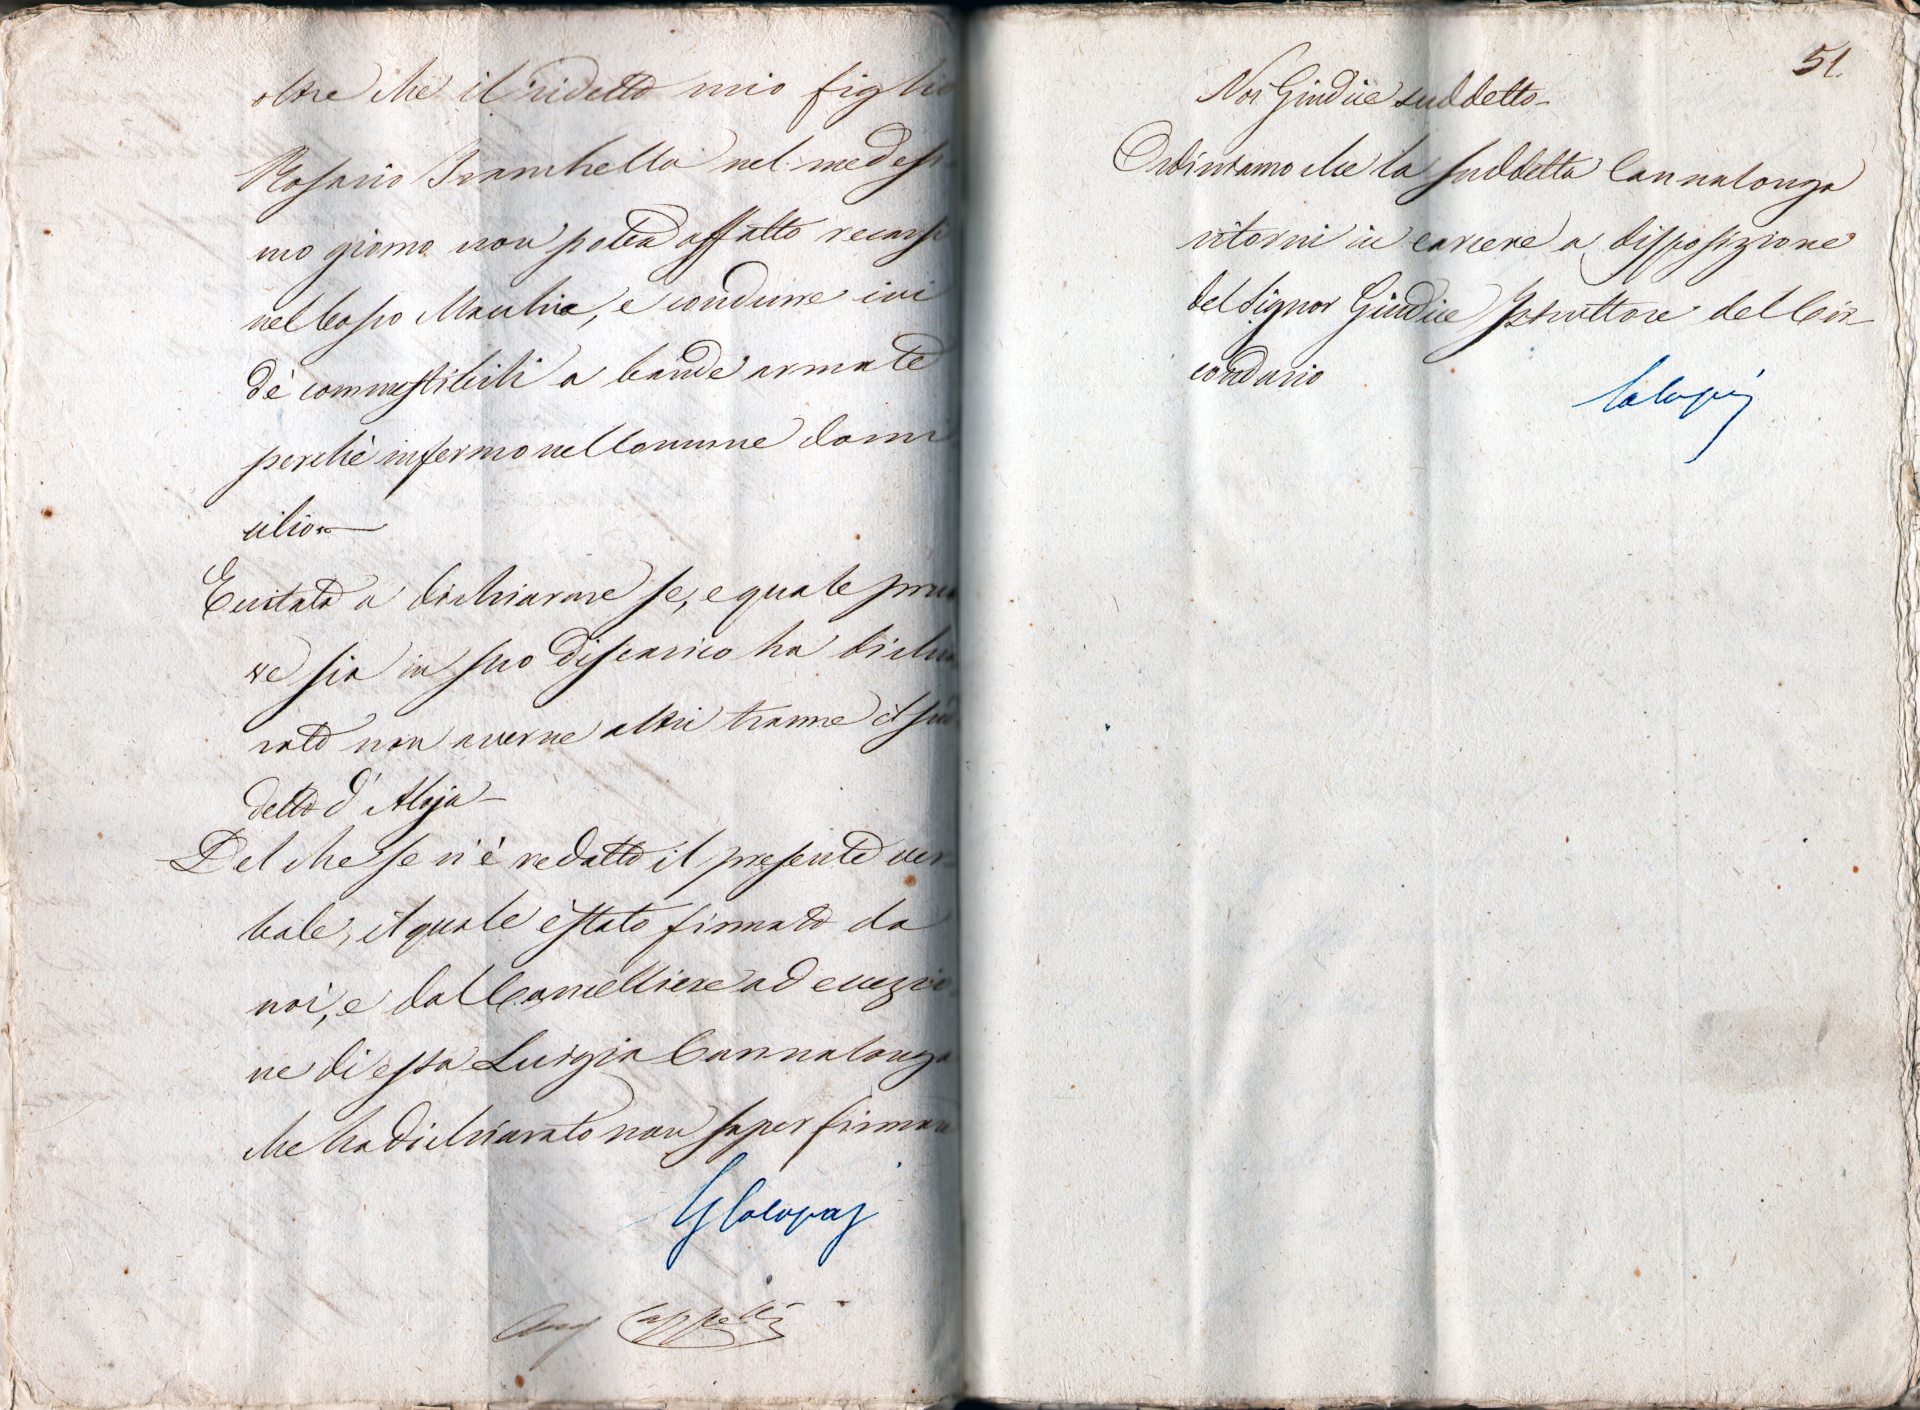 oltre che il ridetto mio figlio
Rosario Trambella nel medesi
mo giorno non potea affatto recarsi
nel bosco Macchia, e condurre ivi
de' commestibili a bande armate
perchè infermo nel comune domi
cilio
Eccitata a dichiarare se, e quale pruo
ve sia in suo discarico ha dichia
rato non averne altri tranne il sud
detto d'Aloja
Del che se n'è redatto il presente ver
bale, il quale è stato firmato da
noi, e dal Cancelliere ad eccezio
ne di essa Luigia Cannalonga
che ha dichiarato non saper firmare
Cappelli
51.
Noi Giudice suddetto
Ordiniamo che la suddetta Cannalonga
ritorni in carcere a disposizione
del Signor Giudice Istruttore del Cir
condario